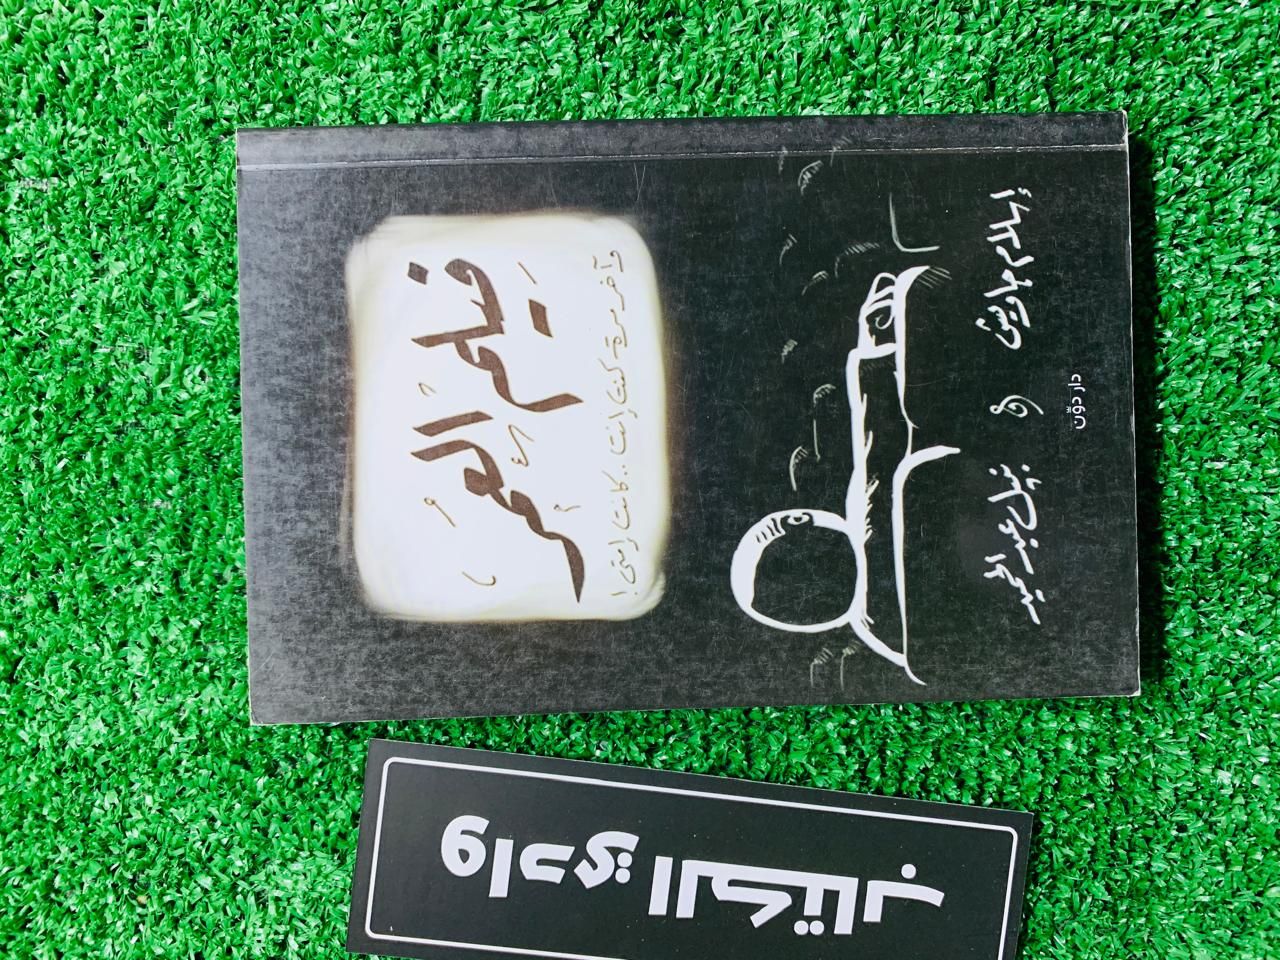 فيلم العمر
وآخر مرة كنت إنت.. كانت إمتى!
إسلام جاويش
و
نبيل عبد الحميد
دار دوّن
وادي الكتاب